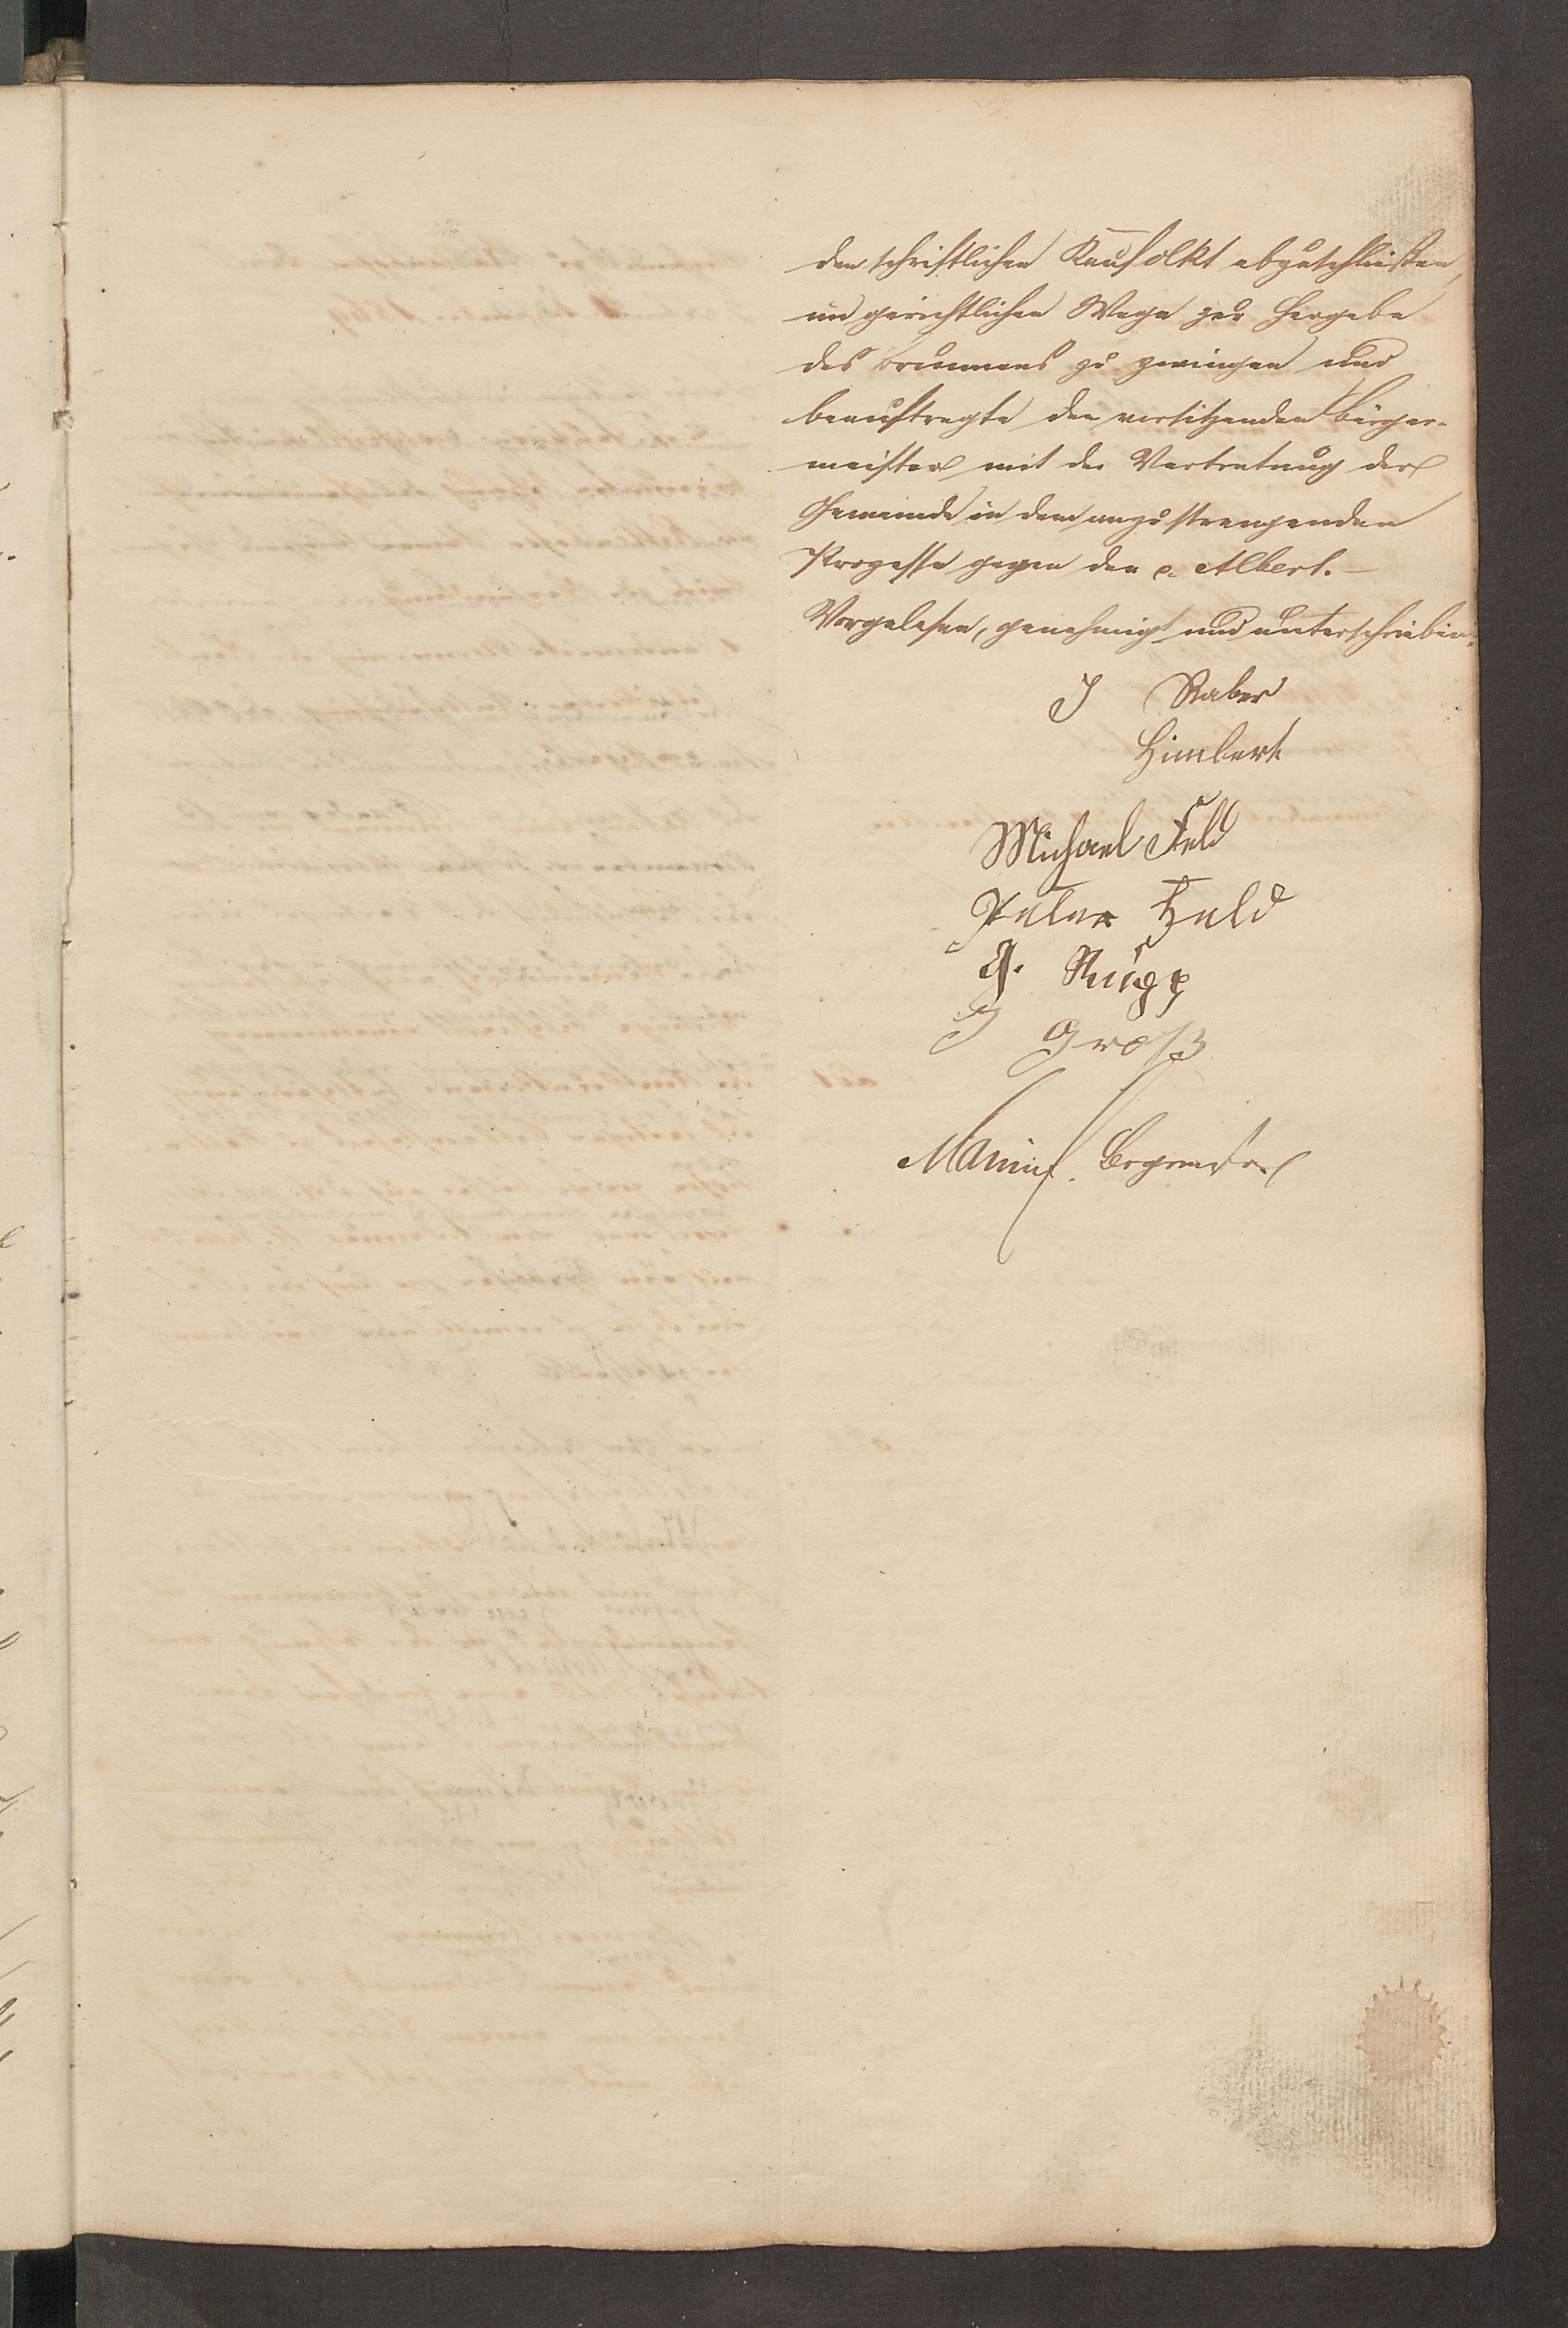 den schriftlichen Kaufakt abzuschließen,
im gerichtlichen Wege zur Hergabe
des Brunnens zu zwingen und
beauftragte den vorsitzenden Bürger-
meister mit der Vertretung der
Gemeinde in dem anzustrengenden
Prozesse gegen den p. Albert.—
Vorgelesen, genehmigt und unterschrieben.
J Raber
Himbert
Michael Feld
Peter Held
G. Rupp
J Groß